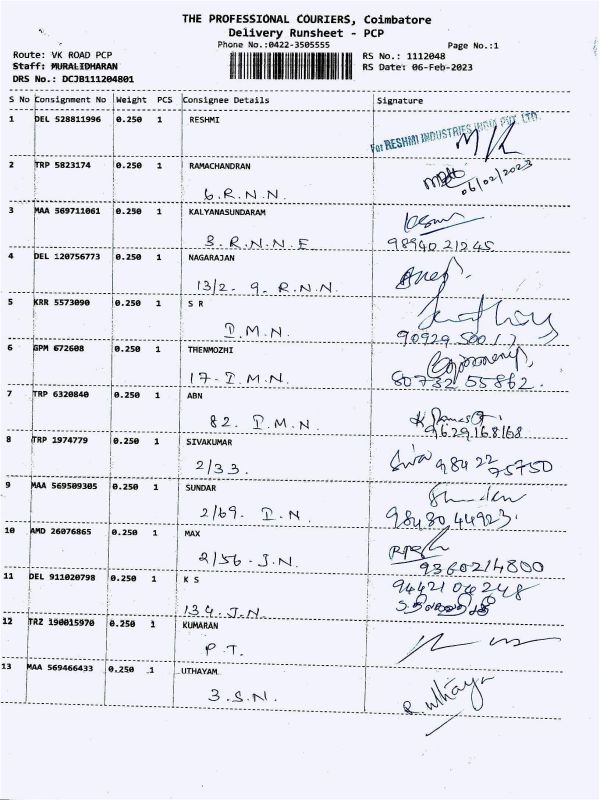 THE PROFESSIONAL COURIERS, Coimbatore
Delivery Runsheet - PCP
Phone No.:0422-3505555
Page No.:1
Route: VK ROAD PCP
RS No.: 1112048
Staff: MURALIDHARAN
RS Date: 06-Feb-2023
DRS No.: DCJB111204801
S No Consignment No Weight PCS Consignee Details Signature
1 DEL 528811996 0.250 1 RESHMI
For RESHMI INDUSTRIES INDIA PVT. LTD.
2 TRP 5823174 0.250 1 RAMACHANDRAN
06/02/2023
6.R.N.N.
3 MAA 569711061 0.250 1 KALYANASUNDARAM
3.R.N.N.E 98940 21245
4 DEL 120756773 0.250 1 NAGARAJAN
13/2- 9. R.N.N.
5 KRR 5573090 0.250 1 S R
I.M.N. 90929 50017
6 GPM 672608 0.250 1 THENMOZHI
17-I.M.N. 80732 55862.
7 TRP 6320840 0.250 1 ABN
82. I.M.N. 9629168168
8 TRP 1974779 0.250 1 SIVAKUMAR
2/33. Siva 98422 75750
9 MAA 569509305 0.250 1 SUNDAR
2/69. I.N. 98430 44923.
10 AMD 26076865 0.250 1 MAX
2/56-J.N. 9360214800
11 DEL 911020798 0.250 1 K S
94421 04248
134.J.N.
12 TRZ 190015970 0.250 1 KUMARAN
P.T.
13 MAA 569466433 0.250 1 UTHAYAM
3.S.N. R uthaya